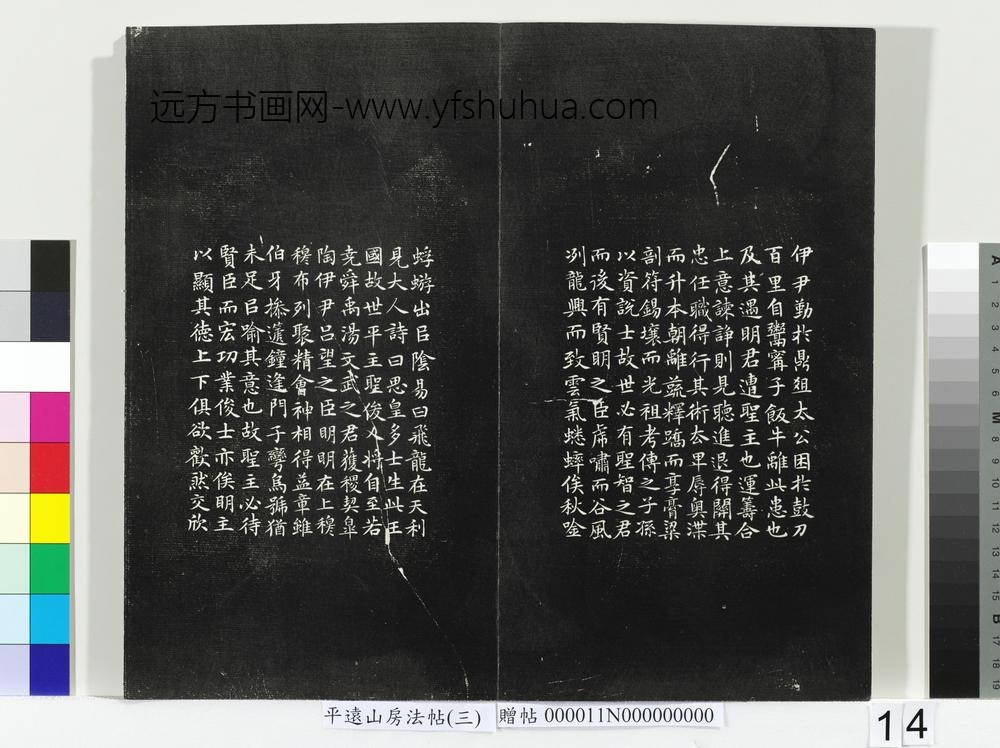 远方书画网-www.yfshuhua.com
伊尹勤於鼎俎太公困於鼓刀
百里自鬻甯子飯牛離此患也
及其遇明君遭聖主也運籌合
上意諫諍則見聽進退得關其
忠任職得行其術去卑辱奧渫
而升本朝離蔬釋蹻而享膏粱
剖符錫壤而光祖考傳之子孫
以資說士故世必有聖智之君
而後有賢明之臣虎嘯而谷風
冽龍興而致雲氣蟋蟀俟秋唫
蜉蝣出㠯陰易曰飛龍在天利
見大人詩曰思皇多士生此王
國故世平主聖俊乂將自至若
堯舜禹湯文武之君獲稷契皋
陶伊尹呂望之臣明明在上穆
穆布列聚精會神相得益章雖
伯牙摻䔬鐘逢門子彎烏號猶
未足㠯喻其意也故聖主必待
賢臣而宏功業俊士亦俟明主
以顯其德上下俱欲歡然交欣
平遠山房法帖(三)
贈帖 000011N000000000
14
A 1 2 3 4 5 6 M 8 9 10 11 12 13 14 15 B 17 18 19